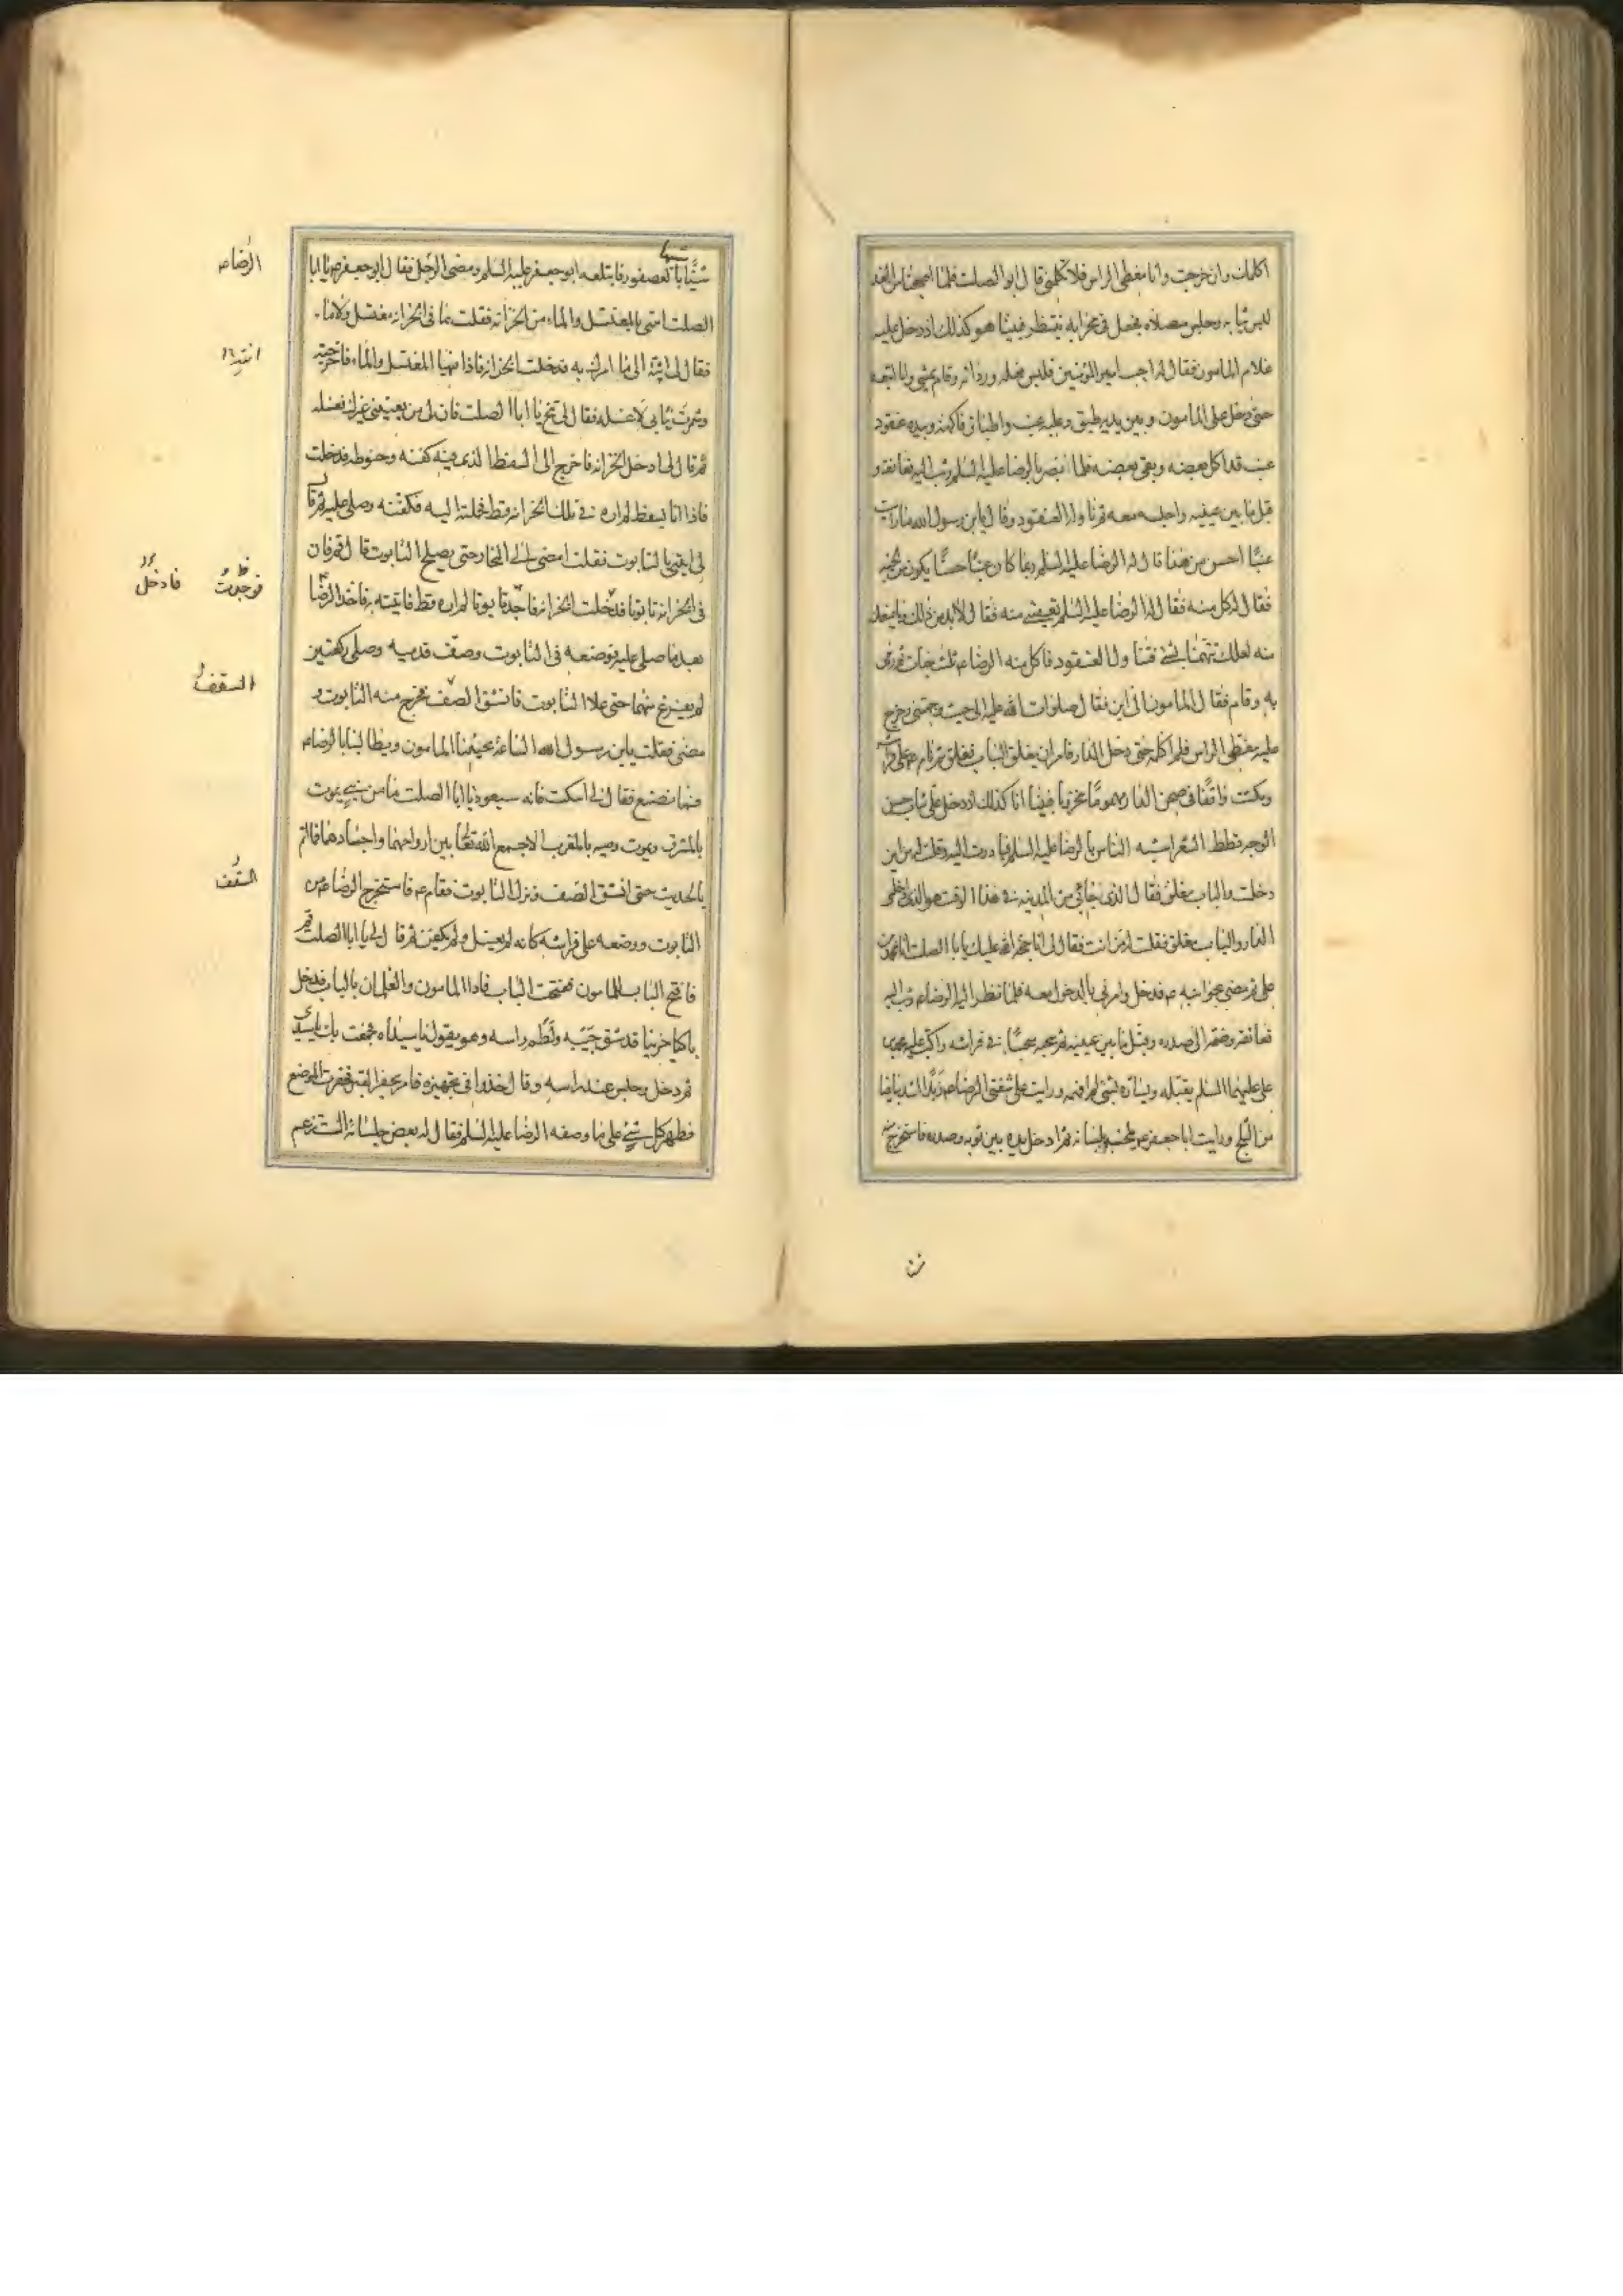 اكلمك وان خرجت وانا مغطى الراس فلا تكلمنى قال ابو الصلت فلما اصبحنا من الغد
لبس ثيابه وجلس مصلاه فجعل فى محرابه ينتظر فبينا هو كذلك اذ دخل عليه
غلام المامون فقال له اجب امير المؤمنين فلبس نعله ورداءه وقام يمشى وانا اتبعه
حتى دخل على المامون وبين يديه طبق وعليه عنب واطباق فاكهة وبيده عنقود
عنب قد اكل بعضه وبقى بعضه فلما ابصر بالرضا عليه السلم وثب اليه فعانقه و
قبل ما بين عينيه واجلسه معه ثم ناوله العنقود وقال يابن رسول الله ما رايت
عنبًا احسن من هذا قال له الرضا عليه السلم ربما كان عنبًا حسنًا يكون من الجنة
فقال له كل منه فقال له الرضا عليه السلم تعفينى منه فقال لا بد من ذلك وما يمنعك
منه لعلك تتهمنا بشئ فتناول العنقود فاكل منه الرضا ع ثلث حبات ثم رمى
به وقام فقال المامون الى اين فقال صلوات الله عليه الى حيث وجهتنى وخرج
عليه مغطى الراس فلم اكلمه حتى دخل الدار فامر ان يغلق الباب فغلق ثم نام ع على فراشه
ومكثت واقفًا فى صحن الدار مهمومًا محزونا فبينا انا كذلك اذ دخل على شاب حسن
الوجه قطط الشعر اشبه الناس بالرضا عليه السلم فبادرت اليه وقلت له من اين
دخلت والباب مغلق فقال الذى جاءنى من المدينه فى هذا الوقت هو الذى ادخلنى
الدار والباب مغلق فقلت له من انت فقال لى انا حجة الله عليك يا با الصلت انا محمد بن
على ثم مضى نحو ابيه ع فدخل وامرنى بالدخول معه فلما نظر اليه الرضا ع وثب اليه
فعانقه وضمه الى صدره وقبل ما بين عينيه ثم سحبه سحبًا فى فراشه واكب عليه محمد بن
على عليهما السلم يقبله ويساره بشئ لم افهمه ورايت على شفتى الرضا ع زبدًا اشد بياضا
من الثلج ورايت ابا جعفر ع يلحسه بلسانه ثم ادخل يده بين ثوبه وصدره فاستخرج منه
شيئًا شبيها بالعصفور فابتلعه ابو جعفر عليه السلم ومضى الرجل فقال ابو جعفر ع يا ابا
الصلت ائتنى بالمغتسل والماء من الخزانه فقلت ما فى الخزانه مغتسل ولا ماء
فقال لى ائته الى ما امرتك به فدخلت الخزانه فاذا فيها المغتسل والماء فاخرجته
وشمرت ثيابى لاغسله فقال لى تنح يا ابا الصلت فان لى من يعيننى غيرك فغسله
ثم قال لى ادخل الخزانه فاخرج الى السفط الذى فيه كفنه وحنوطه فدخلت
فاذا انا بسفط لم اره فى تلك الخزانه قط فحملته اليه فكفنه وصلى عليه ثم قال
لى ايتنى بالتابوت فقلت امضى الى النجار حتى يصلح التابوت قال قم فان
فى الخزانه تابوتا فدخلت الخزانه فاجد تابوتا لم اره قط فاتيته به فاخذ الرضا
بعد ما صلى عليه فوضعه فى التابوت وصف قدميه وصلى ركعتين
لم يفرغ منهما حتى علا التابوت فانشق الصف فخرج منه التابوت و
مضى فقلت يابن رسول الله الساعة يجيئنا المامون ويطالبنا بالرضا ع
فما نصنع فقال لى اسكت فانه سيعود يا ابا الصلت ما من نبى يموت
بالمشرق ويموت وصيه بالمغرب الا جمع الله تعالى بين ارواحهما واجسادهما فما تم
الحديث حتى انشق الصف ونزل التابوت فقام ع فاستخرج الرضا ع من
التابوت ووضعه على فراشه كانه لم يغسل ولم يكفن ثم قال لى يا ابا الصلت قم
فافتح الباب للمامون ففتحت الباب فاذا المامون والغلمان بالباب فدخل
باكيا حزينا قد شق جيبه ولطم راسه وهو يقول يا سيداه فجعت بك يا سيدى
ثم دخل وجلس عند راسه وقال خذوا فى تجهيزه فامر بحفر القبر فحفرت الموضع
فظهر كل شئ على ما وصفه الرضا عليه السلم فقال له بعض جلسائه الست تزعم
الرضا ع
فوجدت
فادخل
السقف
السقف